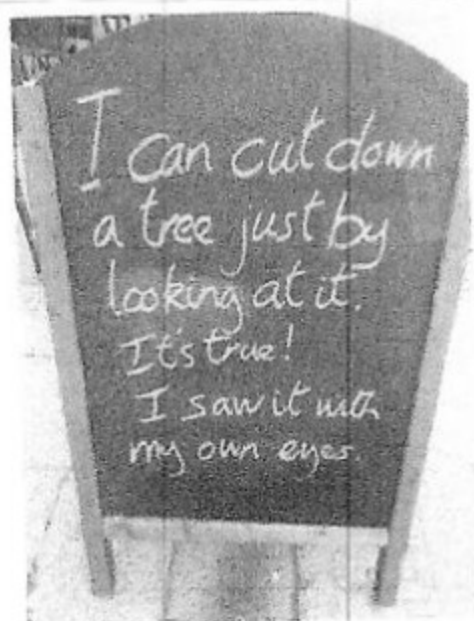 I can cut down
a tree just by
looking at it.
It's true!
I saw it with
my own eyes.